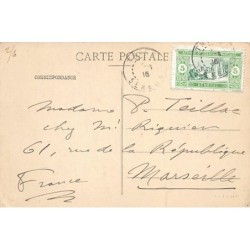 2/6
CARTE POSTALE
5
SÉNÉGAL
5
CORRESPONDANCE
Madame P. Teillac
chez Mr Riquier
61, rue de la République
Marseille
France